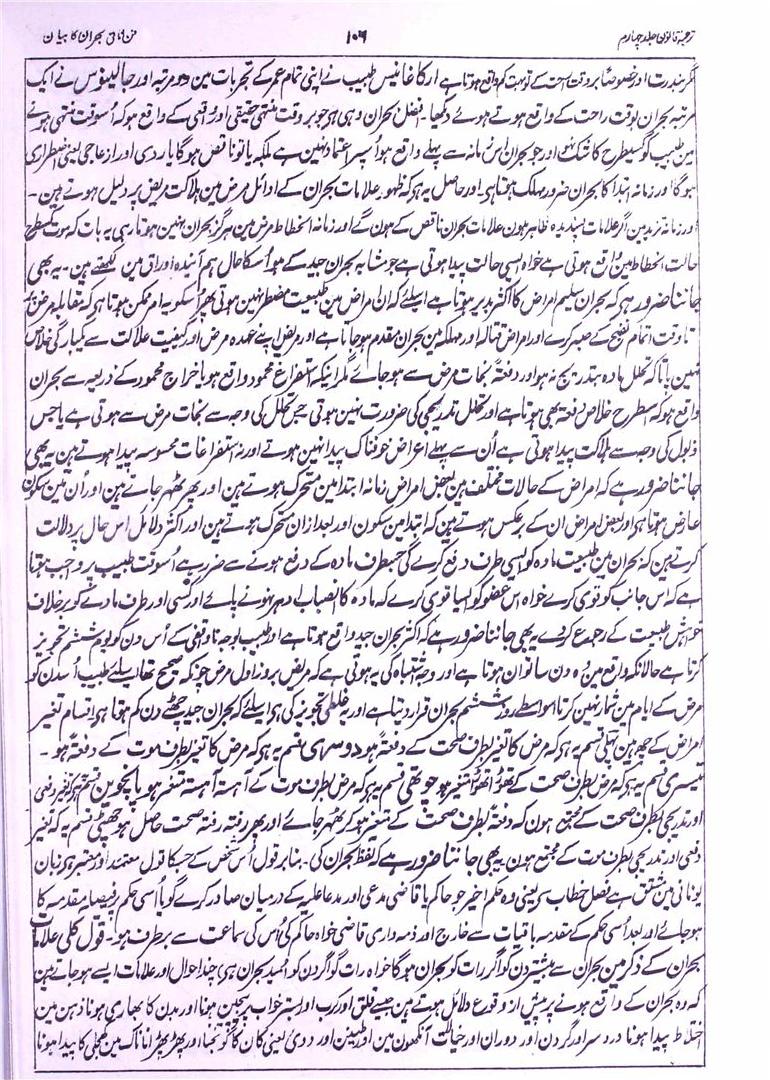 ترجمۂ قانون جلد چہارم ۱۰۶ بحران کا بیان
مگر بندرت اور خصوصاً بروقت راحت کے تو بہت کم واقع ہوتا ہے ارکاغانیس طبیب نے اپنی تمام عمر کے تجربات مین دو مرتبہ اور جالینوس نے ایک
مرتبہ بحران بوقت راحت کے واقع ہوتے ہوئے دیکھا۔ افضل بحران وہی ہی جو بروقت منتہی حقیقی اور واقعی کے واقع ہو کہ اُسوقت منتہی ہونے
مین طبیب کو کسیطرح کا شک نہو اور جو بحران اس زمانہ سے پہلے واقع ہو اُسپر اعتماد نہین ہے بلکہ یا تو ناقص ہوگا یا ردی اور ازعاجی یعنی اضطراری
ہوگا اور زمانہ ابتدا کا بحران ضرور مہلک ہوتا ہی اور حاصل یہ ہی کہ ظہور علامات بحران کے اوائل مرض مین ہلاکت مریض پر دلیل ہوتے ہین۔
اور زمانہ تزید مین اگر علامات پسندیدہ ظاہر ہون علامات بحران ناقص کے ہون گے اور زمانہ انحطاط مرض مین ہرگز بحران نہین ہوتا رہی یہ بات کہ موت کسطرح
حالت انحطاط مین واقع ہوتی ہے خواہ ایسی حالت پیدا ہوتی ہے جو مشابہ بحران جید کے ہو اُسکا حال ہم آیندہ اوراق مین لکھتے ہین۔ یہ بھی
جاننا ضرور ہی کہ بحران سلیم امراض کا اکثر بدیر ہوتا ہے اسلیے کہ ان امراض مین طبیعت مضطر نہین ہوتی پھر اُسکو یہ امر ممکن ہوتا ہی کہ مقابلہ مرض
تا وقت اتمام نضج کے صبر کرے اور امراض قتالہ اور مہلکہ مین بحران مقدم ہو جاتا ہے اور مریض اپنے عمدہ مرض اور کیفیت علالت سے یکبارگی خلاص
نہین پاتا کہ تحلل مادہ بتدریج نہو اور دفعۃً نجات مرض سے ہو جائے مگر اینکہ استفراغ محمود واقع ہو یا خراج محمود کے ذریعہ سے بحران
واقع ہو کہ اسطرح خلاص دفعۃً بھی ہوتا ہے اور تحلل تدریجی کی ضرورت نہین ہوتی جس تحلل کی وجہ سے نجات مرض سے ہوتی ہے یا جس
ذبول کی وجہ سے ہلاکت پیدا ہوتی ہے اُن سے پہلے اعراض خوفناک پیدا نہین ہوتے اور نہ استفراغات محسوسہ پیدا ہوتے ہین یہ بھی
جاننا ضرور ہے کہ امراض کے حالات مختلف ہین بعض امراض زمانہ ابتدا مین متحرک ہوتے ہین اور پھر ٹھہر جاتے ہین اور اُن مین سکون
عارض ہوتا ہی اور بعض امراض ان کے برعکس ہوتے ہین کہ ابتدا مین سکون اور بعد ازان متحرک ہوتے ہین اور اکثر دلائل اس حال پر دلالت
کرتے ہین کہ بحران مین طبیعت مادہ کو ایسی طرف دفع کرے گی جسطرف مادہ کے دفع ہونے سے ضرر ہے اُسوقت طبیب پر واجب ہوتا
ہے کہ اس جانب کو قوی کرے خواہ اس عضو کو ایسا قوی کرے کہ مادہ کا انصباب ادھر نہونے پائے اور کسی اور طرف مادے کو برخلاف
خواہش طبیعت کے رجوع کر دے یہ بھی جاننا ضرور ہے کہ اکثر بحران جید واقع ہوتا ہے اور طبیب بوجہ ناواقفی کے اُس دن کو یوم ششم تجویز
کرتا ہے حالانکہ واقع مین وہ دن ساتوان ہوتا ہے اور وجہ اشتباہ کی یہ ہوتی ہے کہ مریض بروز اول مرض چونکہ صحیح تھا اسلیے طبیب اُسدن کو
مرض کے ایام مین شمار نہین کرتا اسواسطے روز ششم بحران قرار دیتا ہے اور یہ غلطی تجویز کی ہی اسلیے کہ بحران جید چھٹے دن کم ہوتا ہی اقسام تغیر
امراض کے چھ ہین پہلی قسم یہ ہی کہ مرض کا تغیر بطرف صحت کے دفعۃً ہو دوسری قسم یہ ہی کہ مرض کا تغیر بطرف موت کے دفعۃً ہو۔
تیسری قسم یہ ہی کہ مرض بطرف صحت کے تھوڑا تھوڑا متغیر ہو چوتھی قسم یہ ہی کہ مرض بطرف موت کے آہستہ آہستہ متغیر ہو پانچوین قسم یہ ہی کہ تغیر دفعی
اور تدریجی بطرف صحت کے مجتمع ہون کہ دفعۃً بطرف صحت کے متغیر ہو کر ٹھہر جائے اور پھر رفتہ رفتہ صحت حاصل ہو چھٹی قسم یہ کہ تغیر
دفعی اور تدریجی بطرف موت کے مجتمع ہون یہ بھی جاننا ضرور ہے کہ لفظ بحران کی۔ بنا بر قول اُس شخص کے جسکا قول معتمد اور معتبر ہی زبان
یونانی مین مشتق ہے فصل خطاب سے یعنی وہ حکم اخیر جو حاکم یا قاضی مدعی اور مدعا علیہ کے درمیان صادر کرے گویا اُسی حکم پر فیصلہ مقدمہ کا
ہو جائے اور بعد اُسی حکم کے مقدمہ باقیات سے خارج اور ذمہ داری قاضی خواہ حاکم کی اُس کی سماعت سے برطرف ہو۔ قول کلی علامات
بحران کے ذکر مین بحران سے پیشتر دن کو اگر رات کو بحران ہوگا خواہ رات کو اگر دن کو امید بحران ہی چند احوال اور علامات ایسے ہو جاتے ہین
کہ وہ بحران کے واقع ہونے پر پیش از وقوع دلائل ہوتے ہین جیسے قلق اور کرب اور بستر خواب پر بیچین ہونا اور بدن کا بھاری ہونا ذہن مین
اختلاط پیدا ہونا درد سر اور گردن اور دوران اور خیالات آنکھون مین اور طنین اور دوی یعنی کان کا گونجنا اور پھڑپھڑانا ناک مین کھجلی کا پیدا ہونا